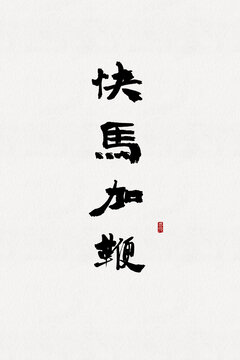 快馬加鞭